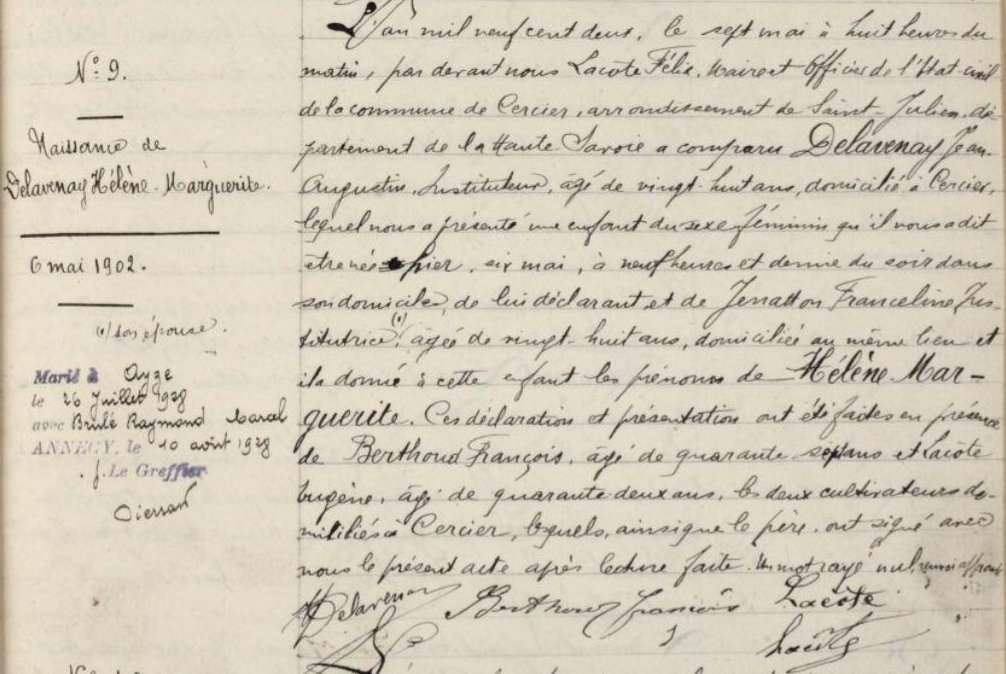 N° 9.
Naissance de
Delavenay Hélène-Marguerite.
6 mai 1902.
(1) son épouse.
Marié à Ayze
le 26 Juillet 1928
avec Brulé Raymond Marcel
ANNECY, le 10 août 1928
p. Le Greffier
L'an mil neuf cent deux, le sept mai à huit heures du
matin, par devant nous Lacôte Félix, maire et Officier de l'Etat-civil
de la commune de Cercier, arrondissement de Saint-Julien, dé-
partement de la Haute Savoie a comparu Delavenay Jean-
Augustin, Instituteur, âgé de vingt-huit ans, domicilié à Cercier,
lequel nous a présenté une enfant du sexe féminin qu'il nous a dit
être née hier, six mai, à neuf heures et demie du soir dans
son domicile, de lui déclarant et de Jenatton Franceline, Ins-
titutrice, (1) âgée de vingt-huit ans, domiciliée au même lieu et
il a donné à cette enfant les prénoms de Hélène-Mar-
guerite. Ces déclaration et présentation ont été faites en présence
de Berthoud François, âgé de quarante sept ans et Lacôte
Eugène, âgé de quarante deux ans, les deux cultivateurs do-
miciliés à Cercier, lesquels, ainsi que le père, ont signé avec
nous le présent acte après lecture faite. Un mot rayé nul, renvoi approuvé
Delavenay Berthoud françois Lacôte
Lacôte